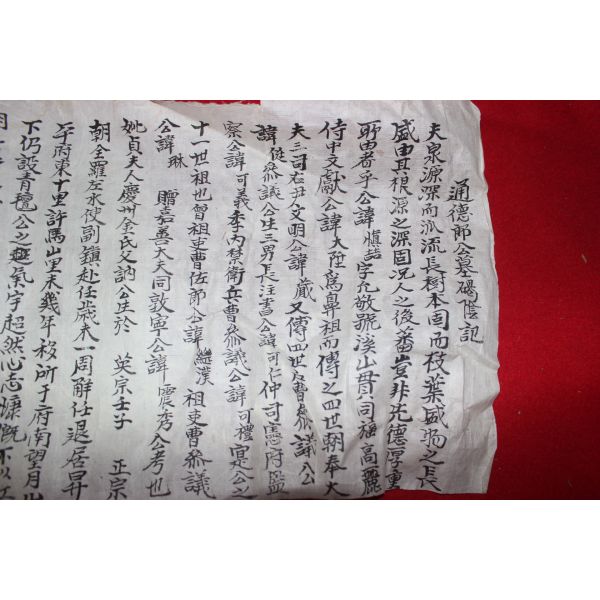 通德郎公墓碣陰記
夫泉源深而派流長樹本固而枝葉盛物之長
盛由其根源之深固況人之後蕃豈非先德厚重
所由者乎公諱 愼喆 字允敬號溪山貫司 高麗
侍中文獻公諱 大陞 爲鼻祖而傳之四世朝奉大
夫三司右尹文明公諱 蕆 又傳四世吏曹叅議公
諱 從 叅議公生三男長注書公諱 可仁 仲司憲府監
察公諱 可義 季內禁衛兵曹叅議公諱 可禮 寔公之
十一世祖也曾祖吏曹佐郎公諱 繼漢 祖吏曹叅議
公諱 琳 贈嘉善大夫同敦寧公諱 震秀 公考也
妣貞夫人慶州金氏文訥公生於 英宗壬子 正宗
朝全羅左水使副鎭赴任歲未一周解任退居昇
平府東十里許馬山里未幾年移所于府南望月
下仍設青氊公之 氣宇超然心志慷慨不以